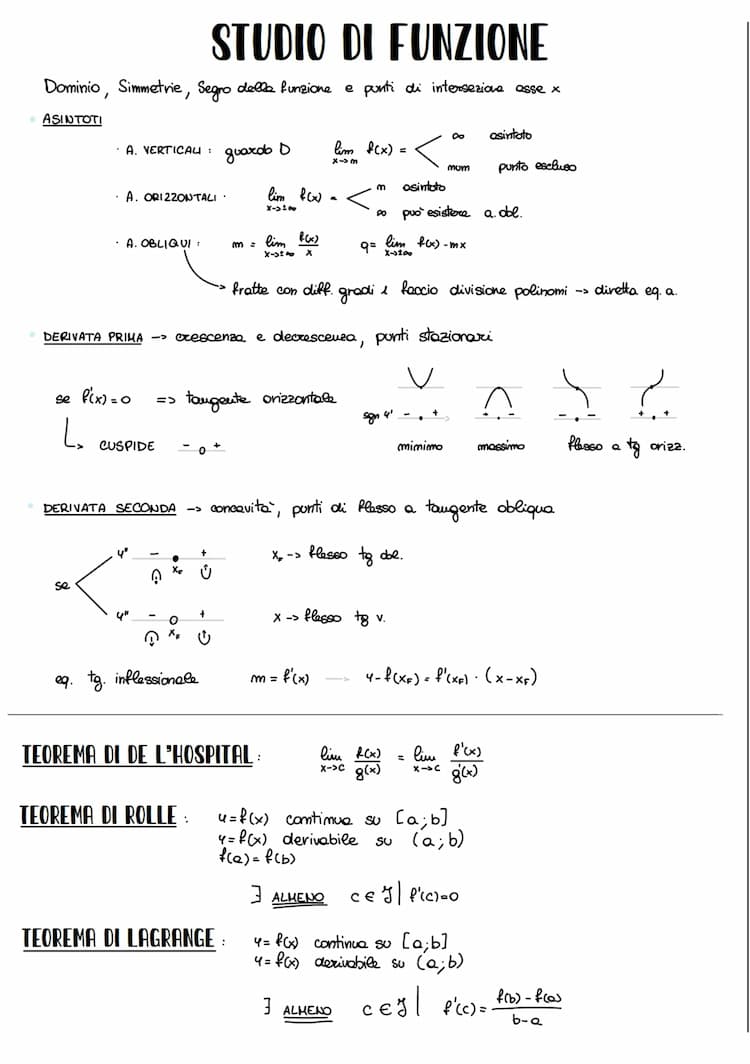 STUDIO DI FUNZIONE
Dominio, Simmetrie, Segno della funzione e punti di intersezione asse x
ASINTOTI
· A. VERTICALI : guardo D lim x->m f(x) = < ∞ asintoto
num punto escluso
· A. ORIZZONTALI · lim x->±∞ f(x) = < m asintoto
∞ può esistere a. obl.
· A. OBLIQUI : m = lim x->±∞ f(x)/x q = lim x->±∞ f(x) - mx
fratte con diff. gradi 1 faccio divisione polinomi -> diretta eq. a.
DERIVATA PRIMA -> crescenza e decrescenza, punti stazionari
se f'(x) = 0 => tangente orizzontale
sgn y' - . + + . - - . - + . +
CUSPIDE - o +
mimimo massimo flesso a tg orizz.
DERIVATA SECONDA -> concavità, punti di flesso a tangente obliqua
y" - • +
xF
xF -> flesso tg obl.
se
y" - o +
xF
x -> flesso tg v.
eq. tg. inflessionale m = f'(x) → y - f(xF) = f'(xF) · (x - xF)
TEOREMA DI DE L'HOSPITAL : lim x->c f(x)/g(x) = lim x->c f'(x)/g'(x)
TEOREMA DI ROLLE : y = f(x) continua su [a;b]
y = f(x) derivabile su (a;b)
f(a) = f(b)
∃ ALMENO c ∈ J | f'(c) = 0
TEOREMA DI LAGRANGE : y = f(x) continua su [a;b]
y = f(x) derivabile su (a;b)
∃ ALMENO c ∈ J | f'(c) = f(b) - f(a) / b - a